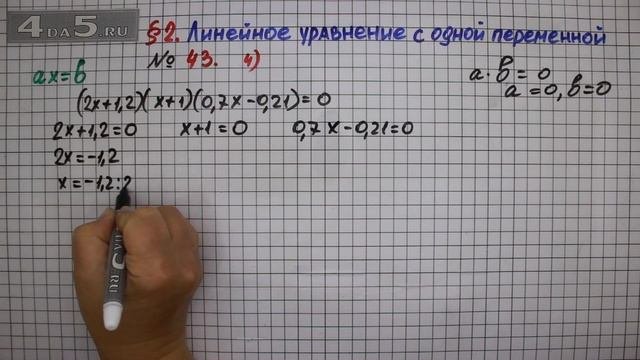 4DA5.RU
§2. Линейное уравнение с одной переменной
№ 43. 4)
ax=b
a·b=0
a=0, b=0
(2x+1,2)(x+1)(0,7x-0,21)=0
2x+1,2=0 x+1=0 0,7x-0,21=0
2x=-1,2
x=-1,2:2
4DA5.RU